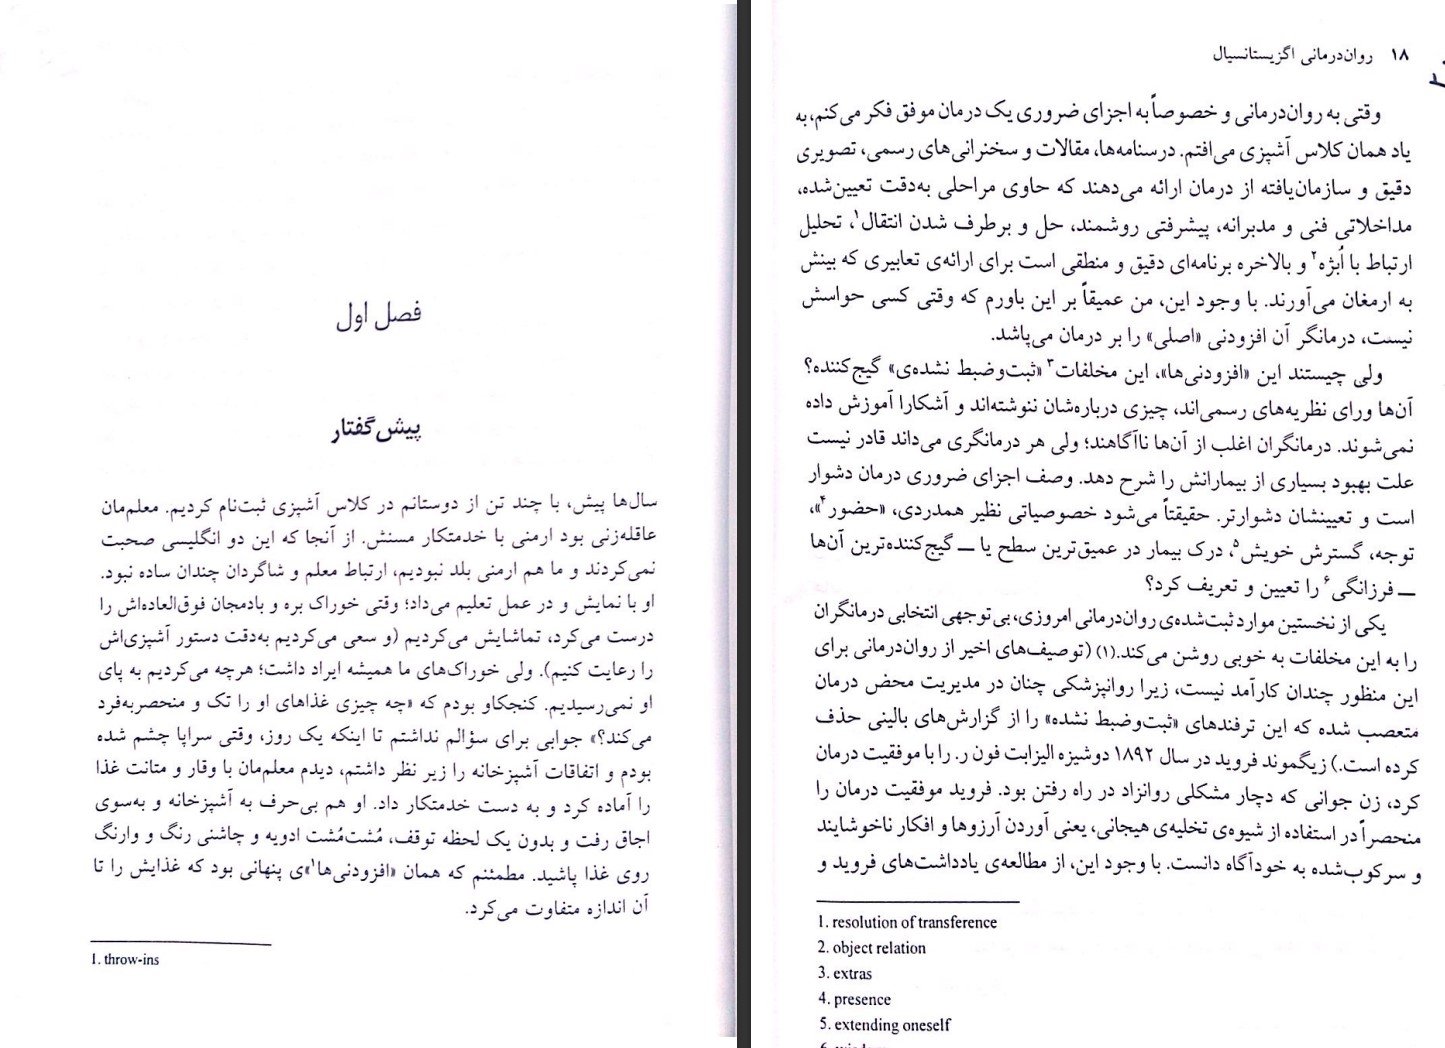 فصل اول
پیش‌گفتار
سال‌ها پیش، با چند تن از دوستانم در کلاس آشپزی ثبت‌نام کردیم. معلم‌مان
عاقله‌زنی بود ارمنی با خدمتکار مسنش. از آنجا که این دو انگلیسی صحبت
نمی‌کردند و ما هم ارمنی بلد نبودیم، ارتباط معلم و شاگردان چندان ساده نبود.
او با نمایش و در عمل تعلیم می‌داد؛ وقتی خوراک بره و بادمجان فوق‌العاده‌اش را
درست می‌کرد، تماشایش می‌کردیم (و سعی می‌کردیم به‌دقت دستور آشپزی‌اش
را رعایت کنیم). ولی خوراک‌های ما همیشه ایراد داشت؛ هرچه می‌کردیم به پای
او نمی‌رسیدیم. کنجکاو بودم که «چه چیزی غذاهای او را تک و منحصربه‌فرد
می‌کند؟» جوابی برای سؤالم نداشتم تا اینکه یک روز، وقتی سراپا چشم شده
بودم و اتفاقات آشپزخانه را زیر نظر داشتم، دیدم معلم‌مان با وقار و متانت غذا
را آماده کرد و به دست خدمتکار داد. او هم بی‌حرف به آشپزخانه و به‌سوی
اجاق رفت و بدون یک لحظه توقف، مُشت‌مُشت ادویه و چاشنی رنگ و وارنگ
روی غذا پاشید. مطمئنم که همان «افزودنی‌ها۱»ی پنهانی بود که غذایش را تا
آن اندازه متفاوت می‌کرد.
1. throw-ins
۱۸ روان‌درمانی اگزیستانسیال
وقتی به روان‌درمانی و خصوصاً به اجزای ضروری یک درمان موفق فکر می‌کنم، به
یاد همان کلاس آشپزی می‌افتم. درسنامه‌ها، مقالات و سخنرانی‌های رسمی، تصویری
دقیق و سازمان‌یافته از درمان ارائه می‌دهند که حاوی مراحلی به‌دقت تعیین‌شده،
مداخلاتی فنی و مدبرانه، پیشرفتی روشمند، حل و برطرف شدن انتقال۱، تحلیل
ارتباط با اُبژه۲ و بالاخره برنامه‌ای دقیق و منطقی است برای ارائه‌ی تعابیری که بینش
به ارمغان می‌آورند. با وجود این، من عمیقاً بر این باورم که وقتی کسی حواسش
نیست، درمانگر آن افزودنی «اصلی» را بر درمان می‌پاشد.
ولی چیستند این «افزودنی‌ها»، این مخلفات۳ «ثبت‌وضبط نشده‌ی» گیج‌کننده؟
آن‌ها ورای نظریه‌های رسمی‌اند، چیزی درباره‌شان ننوشته‌اند و آشکارا آموزش داده
نمی‌شوند. درمانگران اغلب از آن‌ها ناآگاهند؛ ولی هر درمانگری می‌داند قادر نیست
علت بهبود بسیاری از بیمارانش را شرح دهد. وصف اجزای ضروری درمان دشوار
است و تعیینشان دشوارتر. حقیقتاً می‌شود خصوصیاتی نظیر همدردی، «حضور۴»،
توجه، گسترش خویش۵، درک بیمار در عمیق‌ترین سطح یا — گیج‌کننده‌ترین آن‌ها
— فرزانگی۶ را تعیین و تعریف کرد؟
یکی از نخستین موارد ثبت‌شده‌ی روان‌درمانی امروزی، بی‌توجهی انتخابی درمانگران
را به این مخلفات به خوبی روشن می‌کند.(۱) (توصیف‌های اخیر از روان‌درمانی برای
این منظور چندان کارآمد نیست، زیرا روانپزشکی چنان در مدیریت محض درمان
متعصب شده که این ترفندهای «ثبت‌وضبط نشده» را از گزارش‌های بالینی حذف
کرده است.) زیگموند فروید در سال ۱۸۹۲ دوشیزه الیزابت فون ر. را با موفقیت درمان
کرد، زن جوانی که دچار مشکلی روانزاد در راه رفتن بود. فروید موفقیت درمان را
منحصراً در استفاده از شیوه‌ی تخلیه‌ی هیجانی، یعنی آوردن آرزوها و افکار ناخوشایند
و سرکوب‌شده به خودآگاه دانست. با وجود این، از مطالعه‌ی یادداشت‌های فروید و
1. resolution of transference
2. object relation
3. extras
4. presence
5. extending oneself